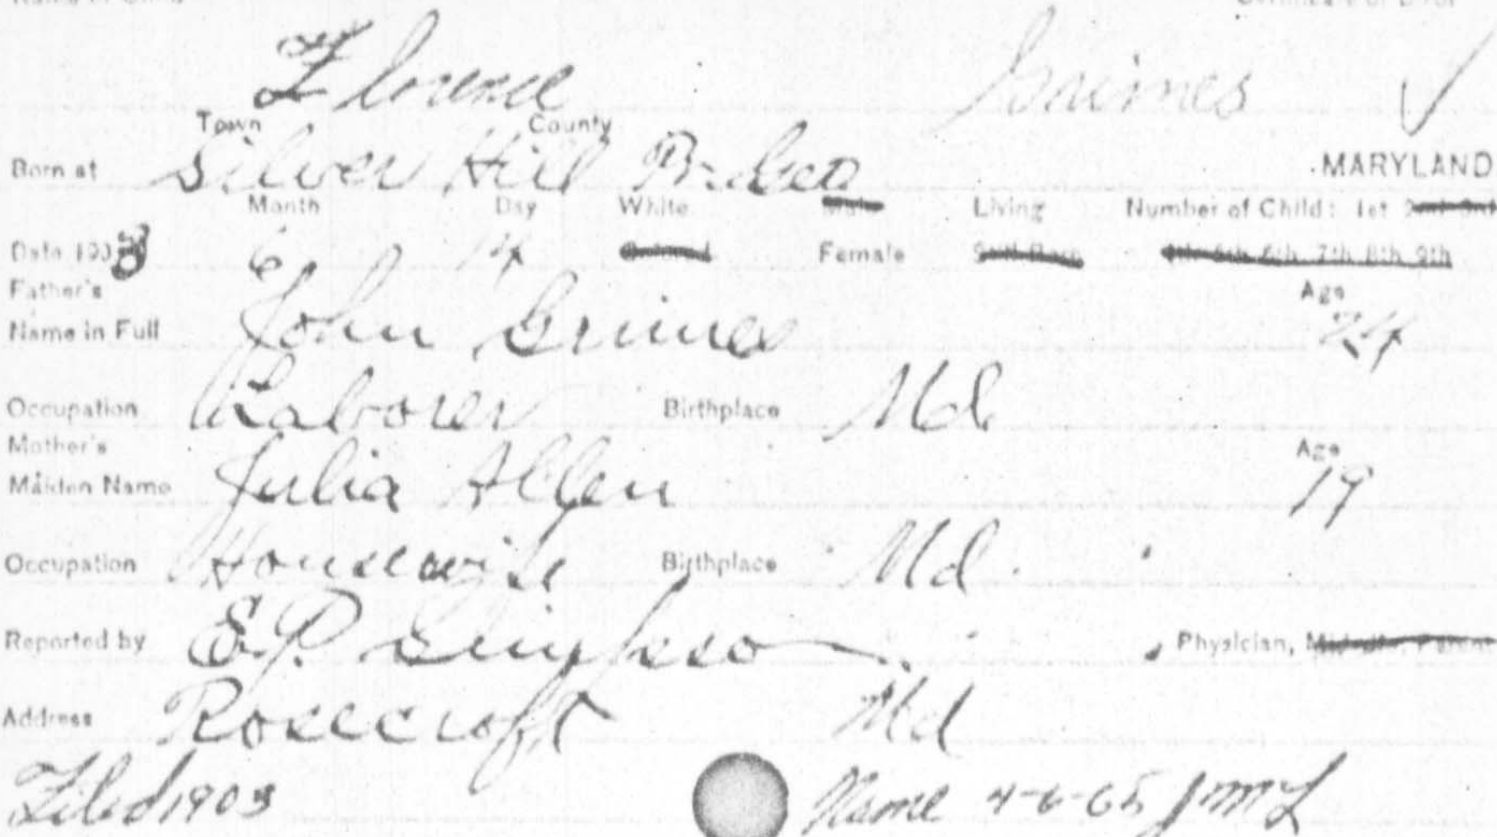 Name of Child Certificate of Birth
Florence Grimes
Town County
Born at Silver Hill Pr. Geo MARYLAND
Month Day White Male Living Number of Child: 1st 2nd 3rd
Date 1903 6 14 Colored Female Still Born 4th 5th 6th 7th 8th 9th
Father's Age
Name in Full John Grimes 24
Occupation Laborer Birthplace Md
Mother's Age
Maiden Name Julia Allen 19
Occupation Housewife Birthplace Md.
Reported by E.P. Simpson Physician, Midwife, Parent
Address Rosecroft Md
Filed 1903 Name 4-6-65 JML